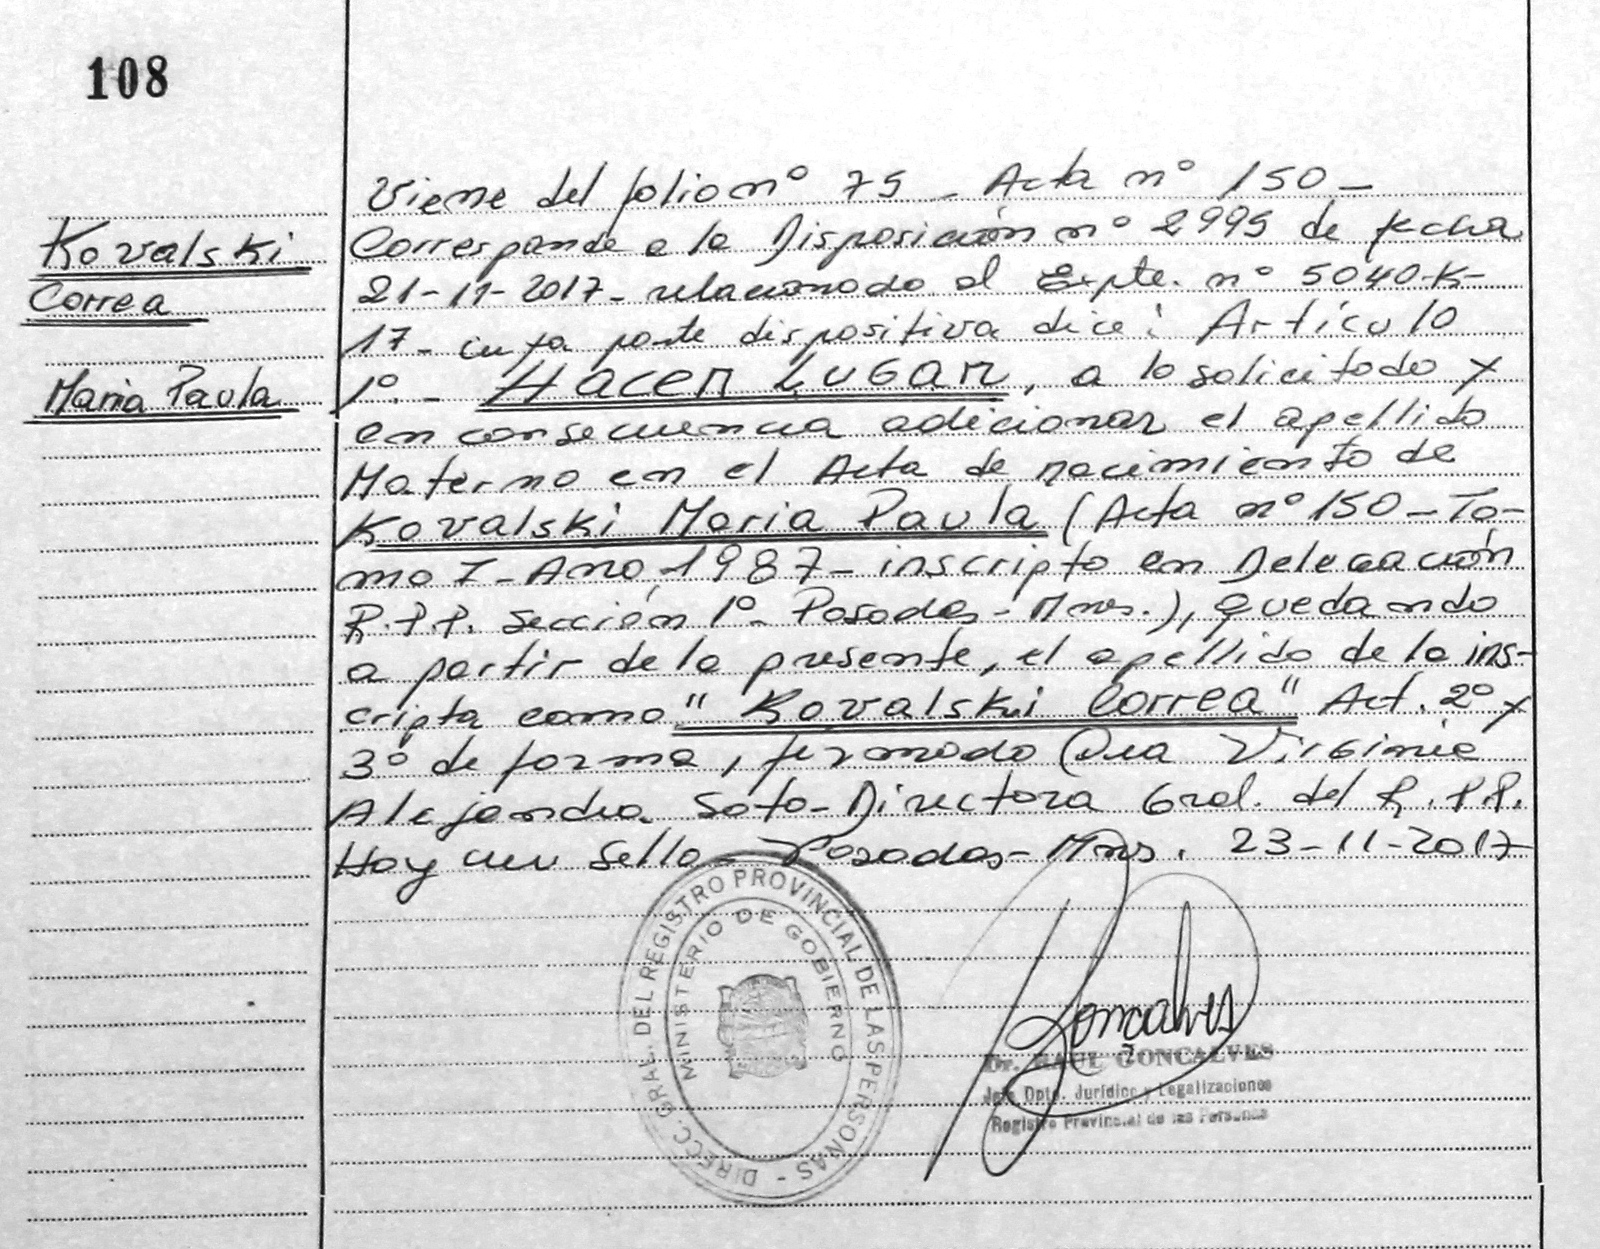 108
Kovalski
Correa
Maria Paula
Viene del folio nº 75 - Acta nº 150 -
Corresponde a la Disposición nº 2995 de fecha
21-11-2017- relacionado al Expte. nº 5040-K-
17- cuya parte dispositiva dice: Artículo
1º.- HACER LUGAR, a lo solicitado y
en consecuencia adicionar el apellido
Materno en el Acta de nacimiento de
Kovalski Maria Paula (Acta nº 150 - To-
mo I - Año 1987 - inscripto en Delegación
R.P.P. Sección 1º- Posadas - Mnes.), quedando
a partir de la presente, el apellido de la ins-
cripta como "Kovalski Correa" Art. 2º y
3º de forma, firmado Dra Virginia
Alejandra Soto - Directora Gral. del R.P.P.
Hay un Sello - Posadas - Mnes. 23-11-2017
DIRECC. GRAL. DEL REGISTRO PROVINCIAL DE LAS PERSONAS -
MINISTERIO DE GOBIERNO
Goncalves
Dr. RAUL GONCALVES
Jefe Dpto. Jurídico y Legalizaciones
Registro Provincial de las Personas